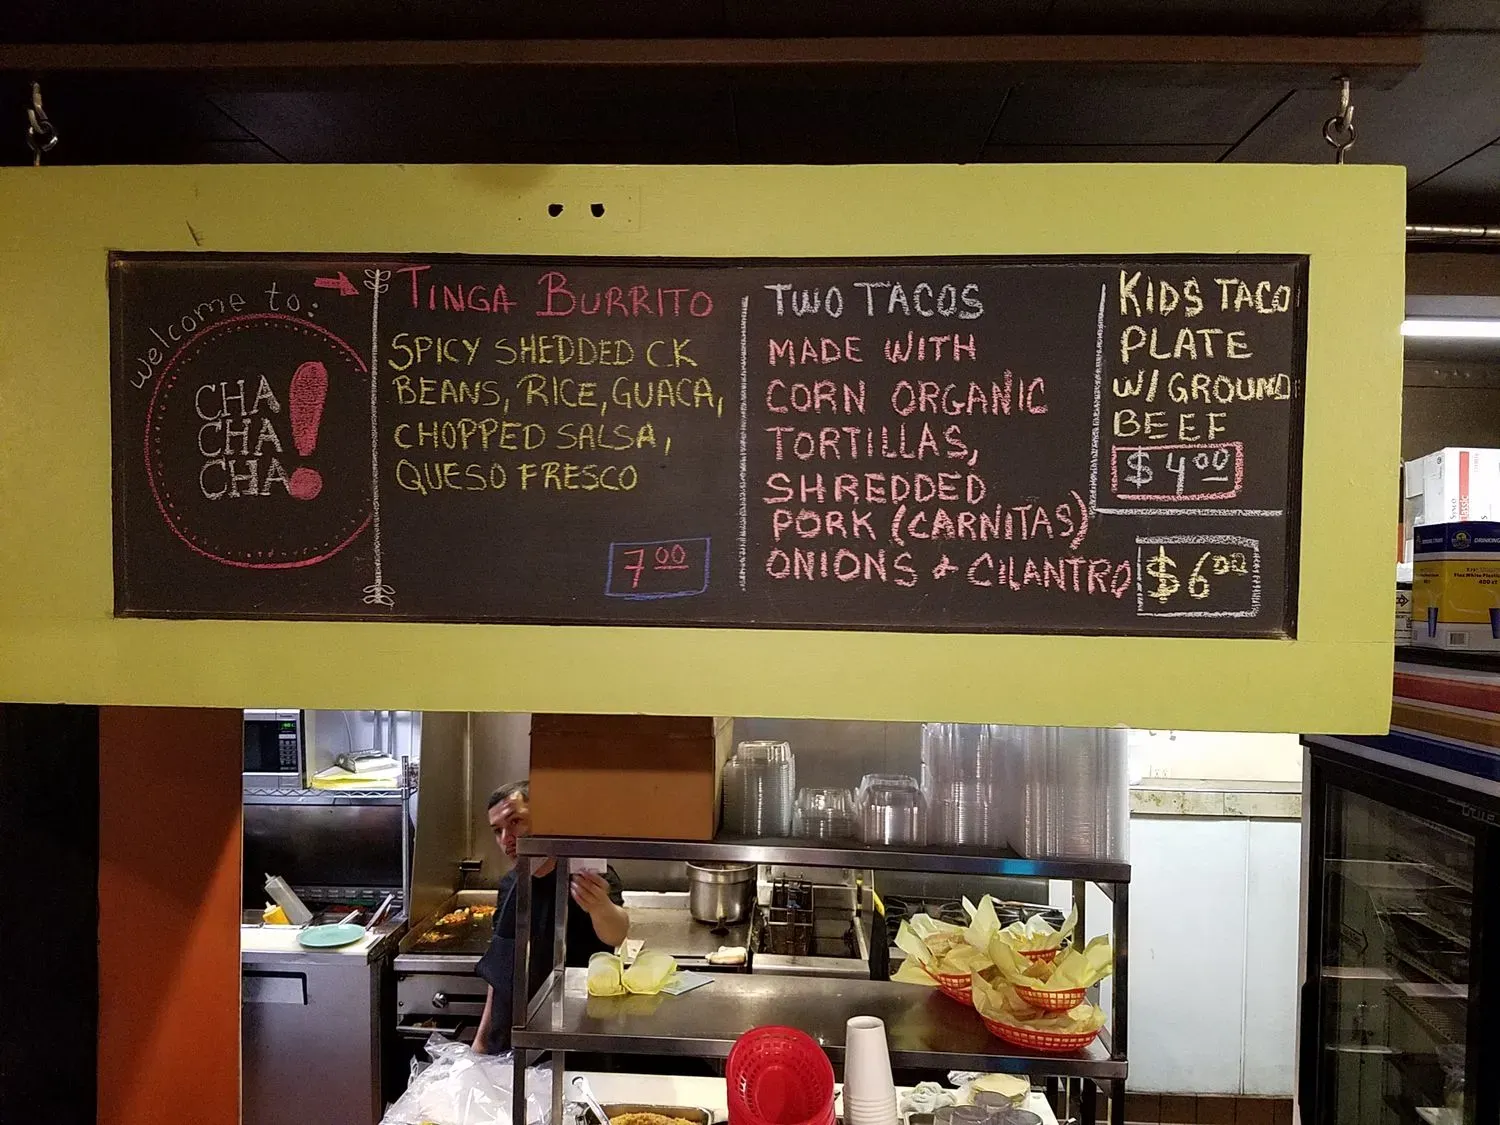 Welcome to:
CHA
CHA
CHA!
TINGA BURRITO
SPICY SHEDDED CK
BEANS, RICE, GUACA,
CHOPPED SALSA,
QUESO FRESCO
7.00
TWO TACOS
MADE WITH
CORN ORGANIC
TORTILLAS,
SHREDDED
PORK (CARNITAS)
ONIONS & CILANTRO
$6.00
KIDS TACO
PLATE
W/ GROUND
BEEF
$4.00